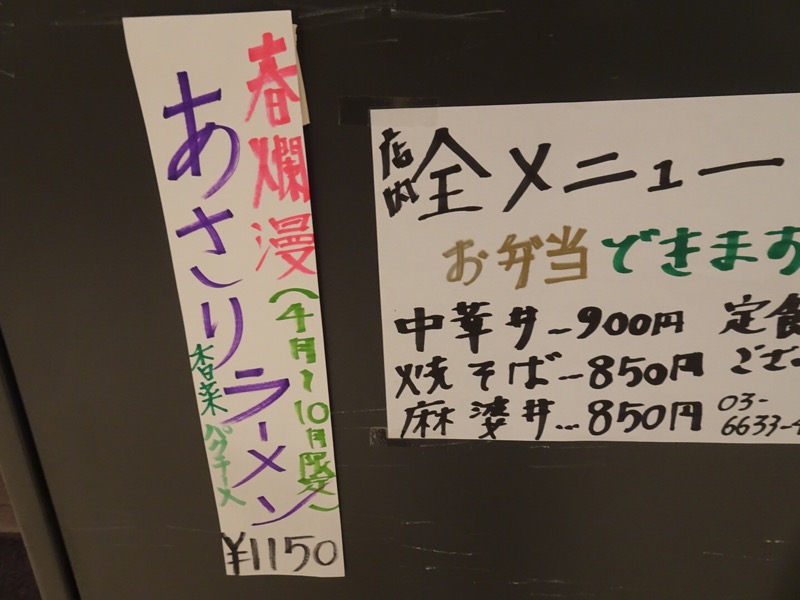 春爛漫
(4月〜10月限定)
あさりラーメン
香菜パクチー入
¥1150
店内全メニュー
お弁当できます
中華丼…900円 定食
焼そば…850円 ござ
麻婆丼…850円 03-
6633-4